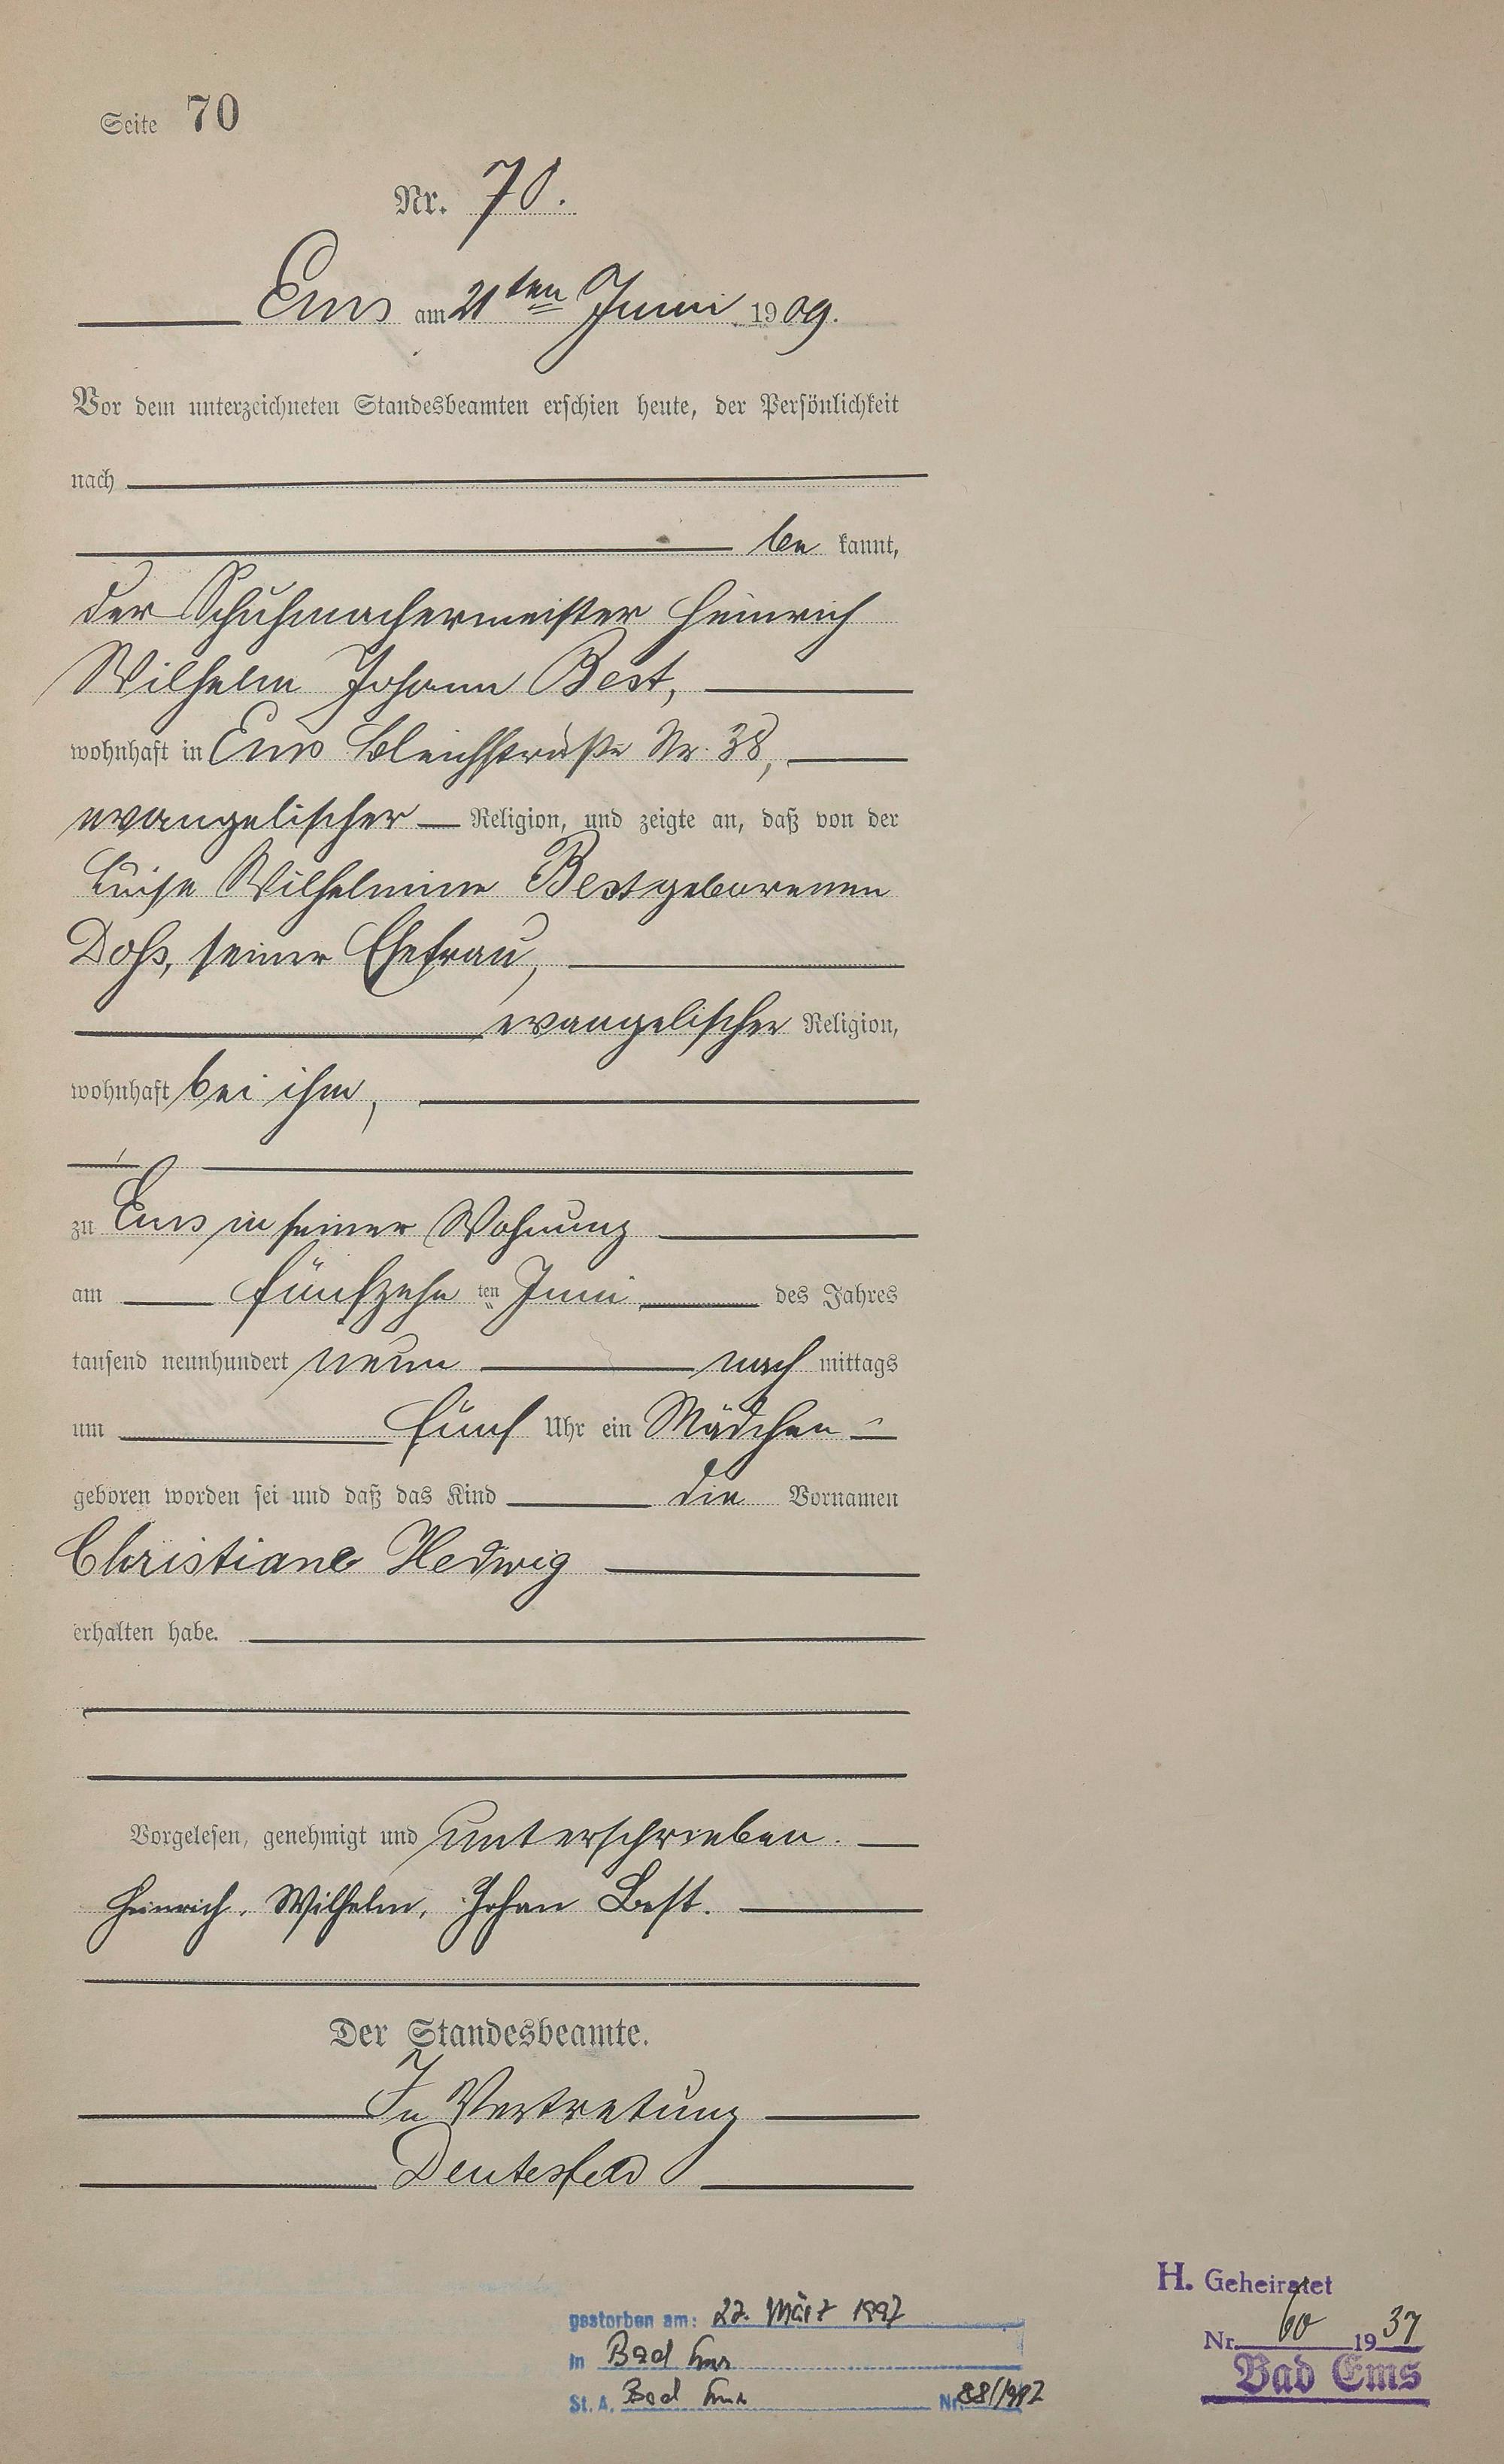 Seite 70
Nr. 70.
Ems am 21ten Juni 1909.
Vor dem unterzeichneten Standesbeamten erschien heute, der Persönlichkeit
nach
be kannt,
der Schuhmachermeister Heinrich
Wilhelm Johann Best,
wohnhaft in Ems Bleichstraße Nr. 38,
evangelischer Religion, und zeigte an, daß von der
Luise Wilhelmine Best geborenen
Dohs, seiner Ehefrau,
evangelischer Religion,
wohnhaft bei ihm,
zu Ems in seiner Wohnung
am fünfzehn ten Juni des Jahres
tausend neunhundert neun nach mittags
um fünf Uhr ein Mädchen
geboren worden sei und daß das Kind die Vornamen
Christiane Hedwig
erhalten habe.
Vorgelesen, genehmigt und unterschrieben.
Heinrich, Wilhelm, Johan Best.
Der Standesbeamte.
In Vertretung
Deutesfeld
gestorben am: 22. März 1997
in Bad Ems
St. A. Bad Ems Nr.
H. Geheiratet
Nr. 60 1937
Bad Ems